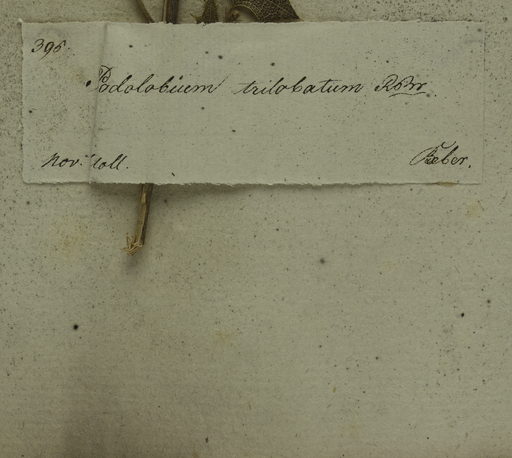 395.
Podolobium trilobatum RBr
Nov. Holl.
Sieber.